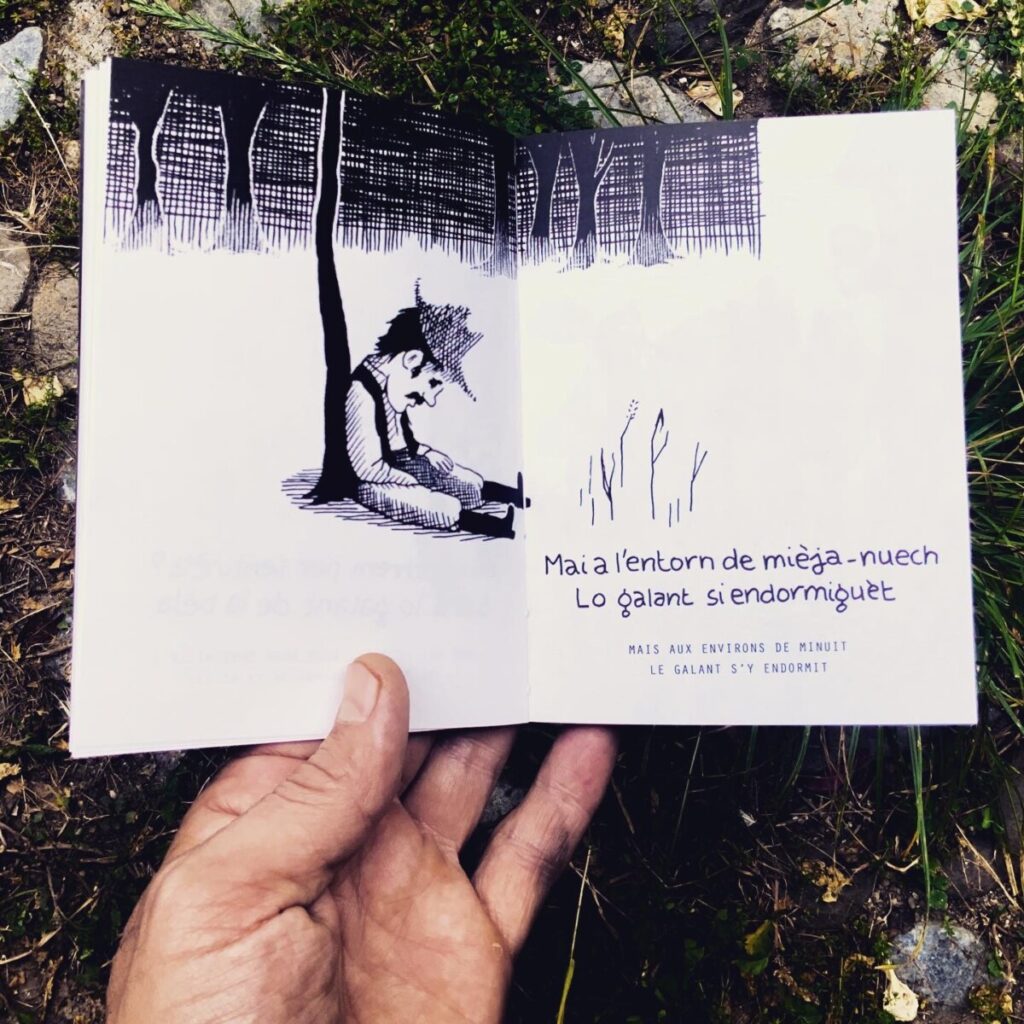 Mai a l'entorn de mièja-nuech
Lo galant si endormiguèt
MAIS AUX ENVIRONS DE MINUIT
LE GALANT S'Y ENDORMIT